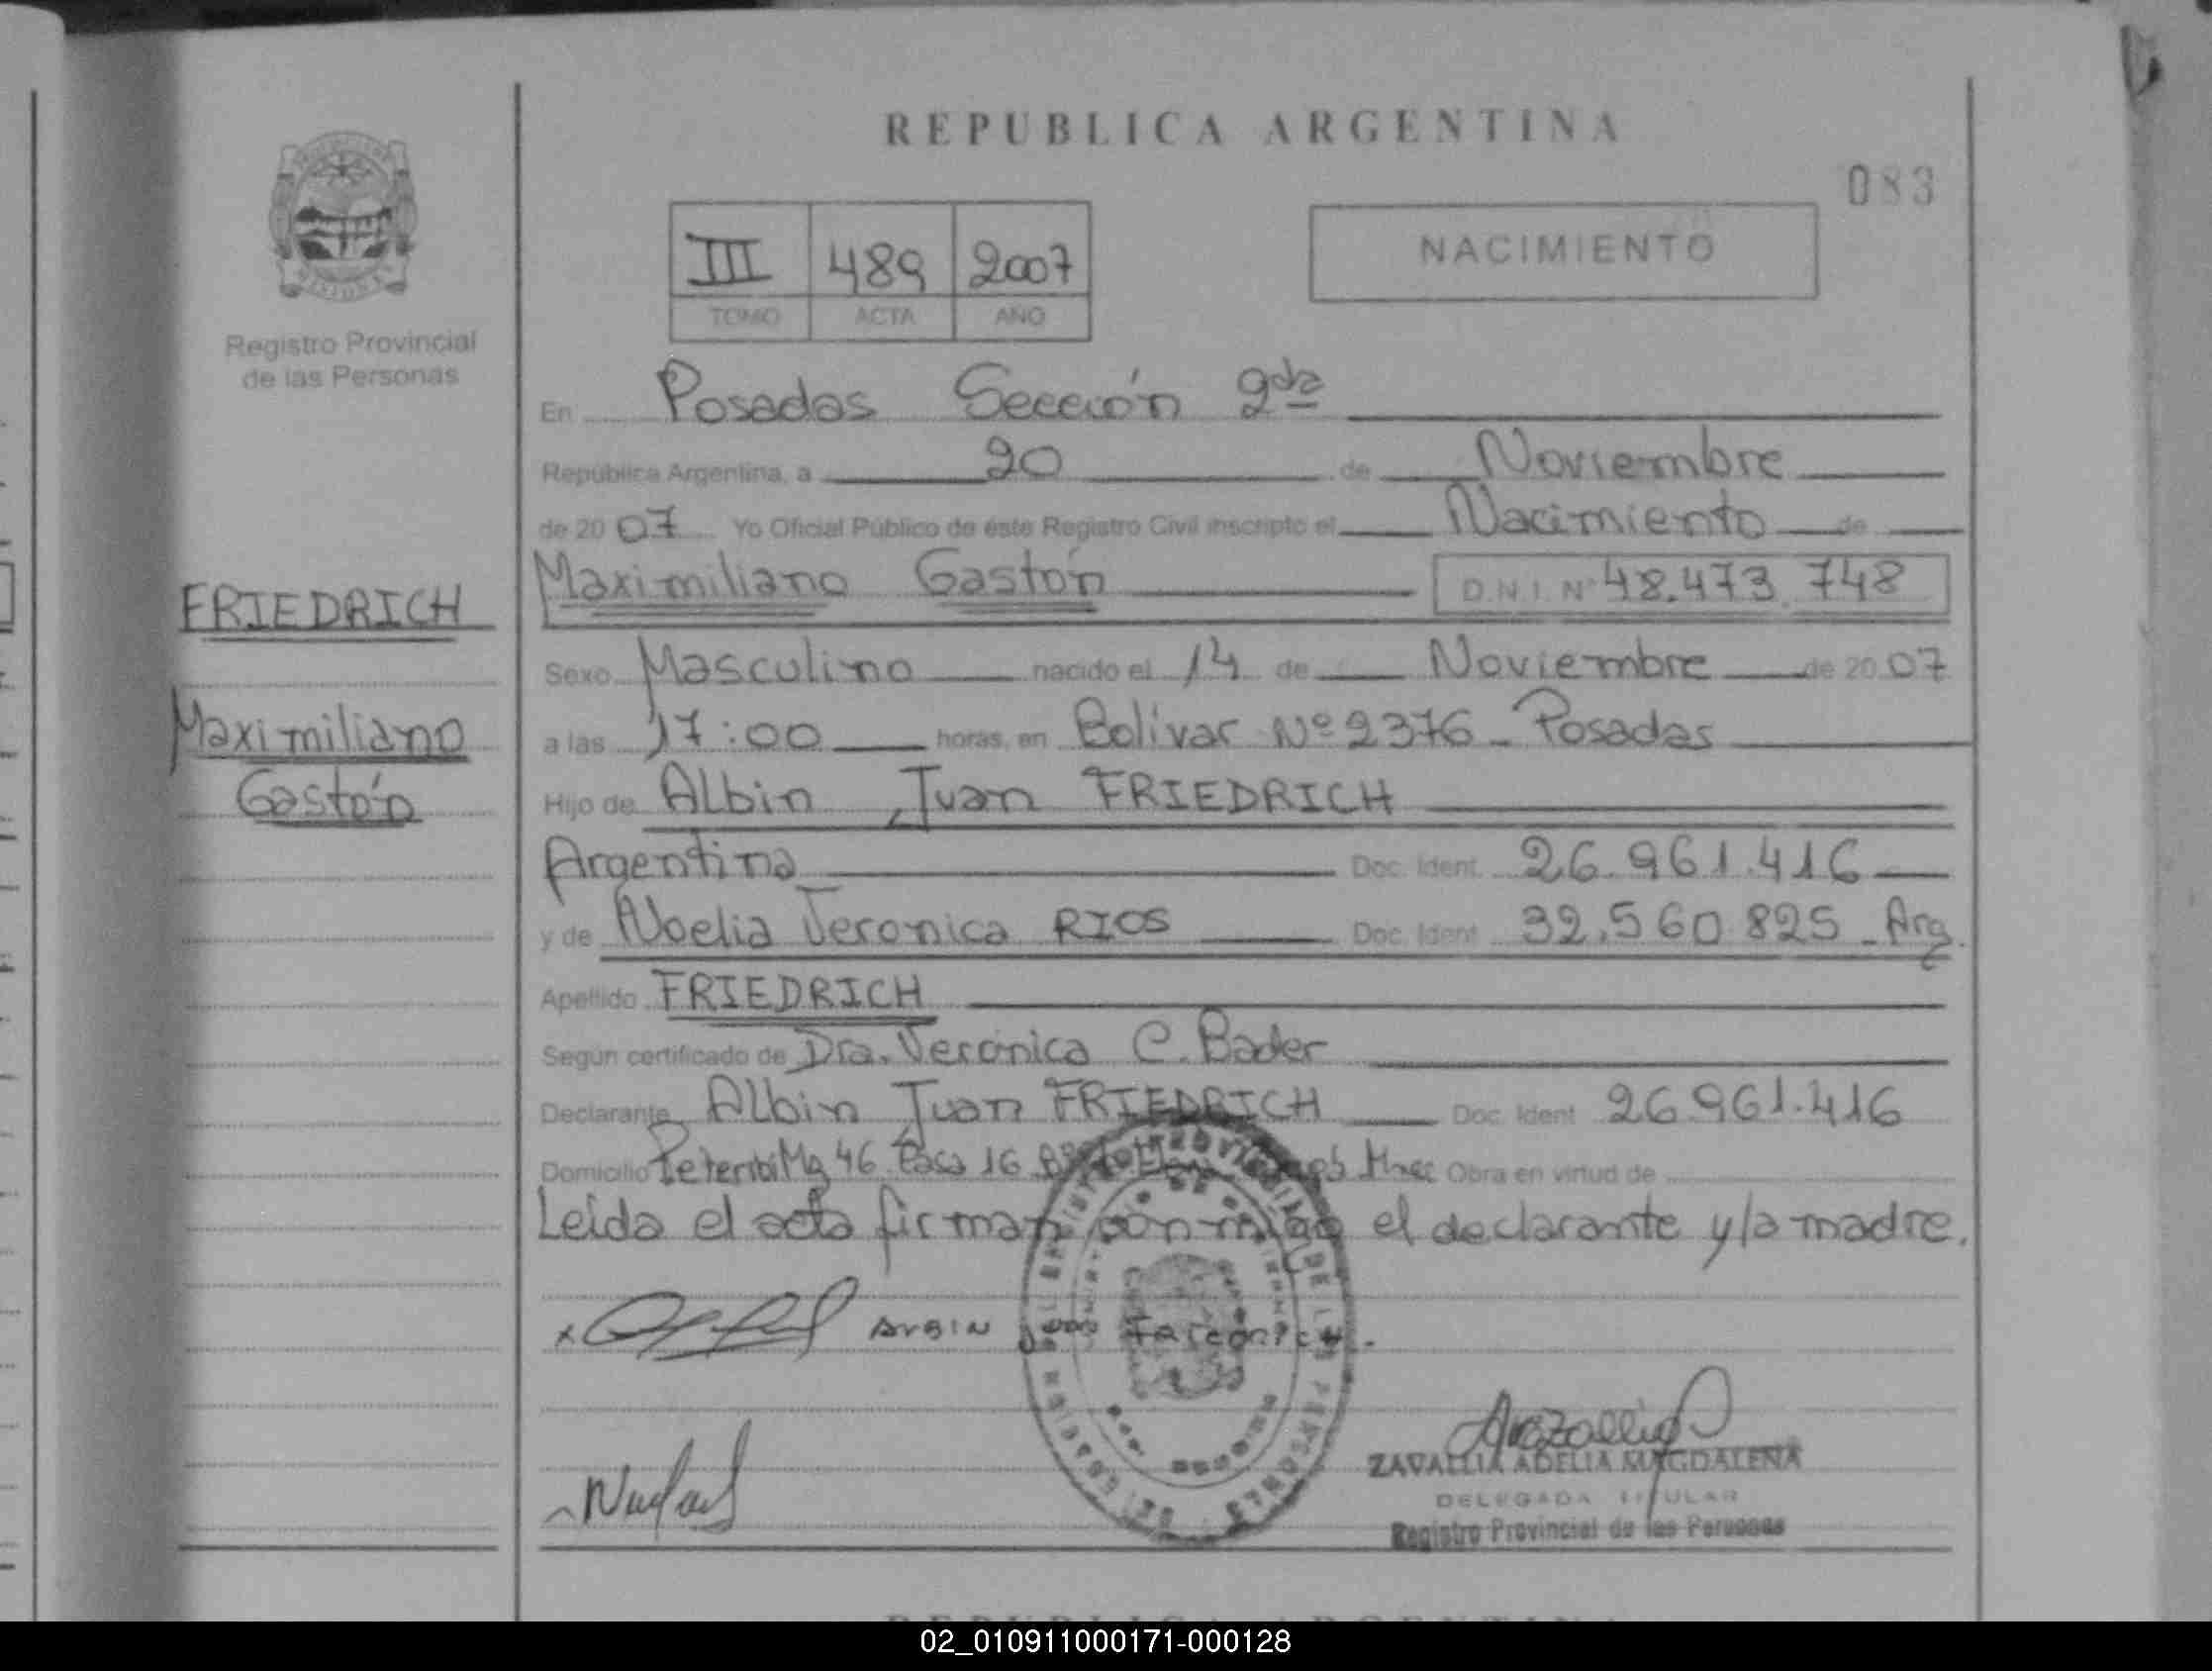 REPUBLICA ARGENTINA
083
III 489 2007
TOMO ACTA AÑO
NACIMIENTO
Registro Provincial
de las Personas
En Posadas Sección 2da
República Argentina, a 20 de Noviembre
de 2007 Yo Oficial Público de éste Registro Civil inscripto el Nacimiento de
Maximiliano Gastón D.N.I. Nº 48.473.748
FRIEDRICH
Maximiliano
Gastón
Sexo Masculino nacido el 14 de Noviembre de 2007
a las 17:00 horas, en Bolívar Nº 2376 - Posadas
Hijo de Albin Juan FRIEDRICH
Argentina Doc. Ident. 26.961.416
y de Noelia Veronica RIOS Doc. Ident. 32.560.825 - Arg.
Apellido FRIEDRICH
Según certificado de Dra. Verónica C. Bader
Declarante Albin Juan FRIEDRICH Doc. Ident. 26.961.416
Domicilio Peteribí Mz 46 Casa 16 Obra en virtud de
Leída el acta firman conmigo el declarante y la madre.
ALBIN Juan FRIEDRICH.
ZAVALLIA ADELIA MAGDALENA
DELEGADA TITULAR
Registro Provincial de las Personas
02_010911000171-000128